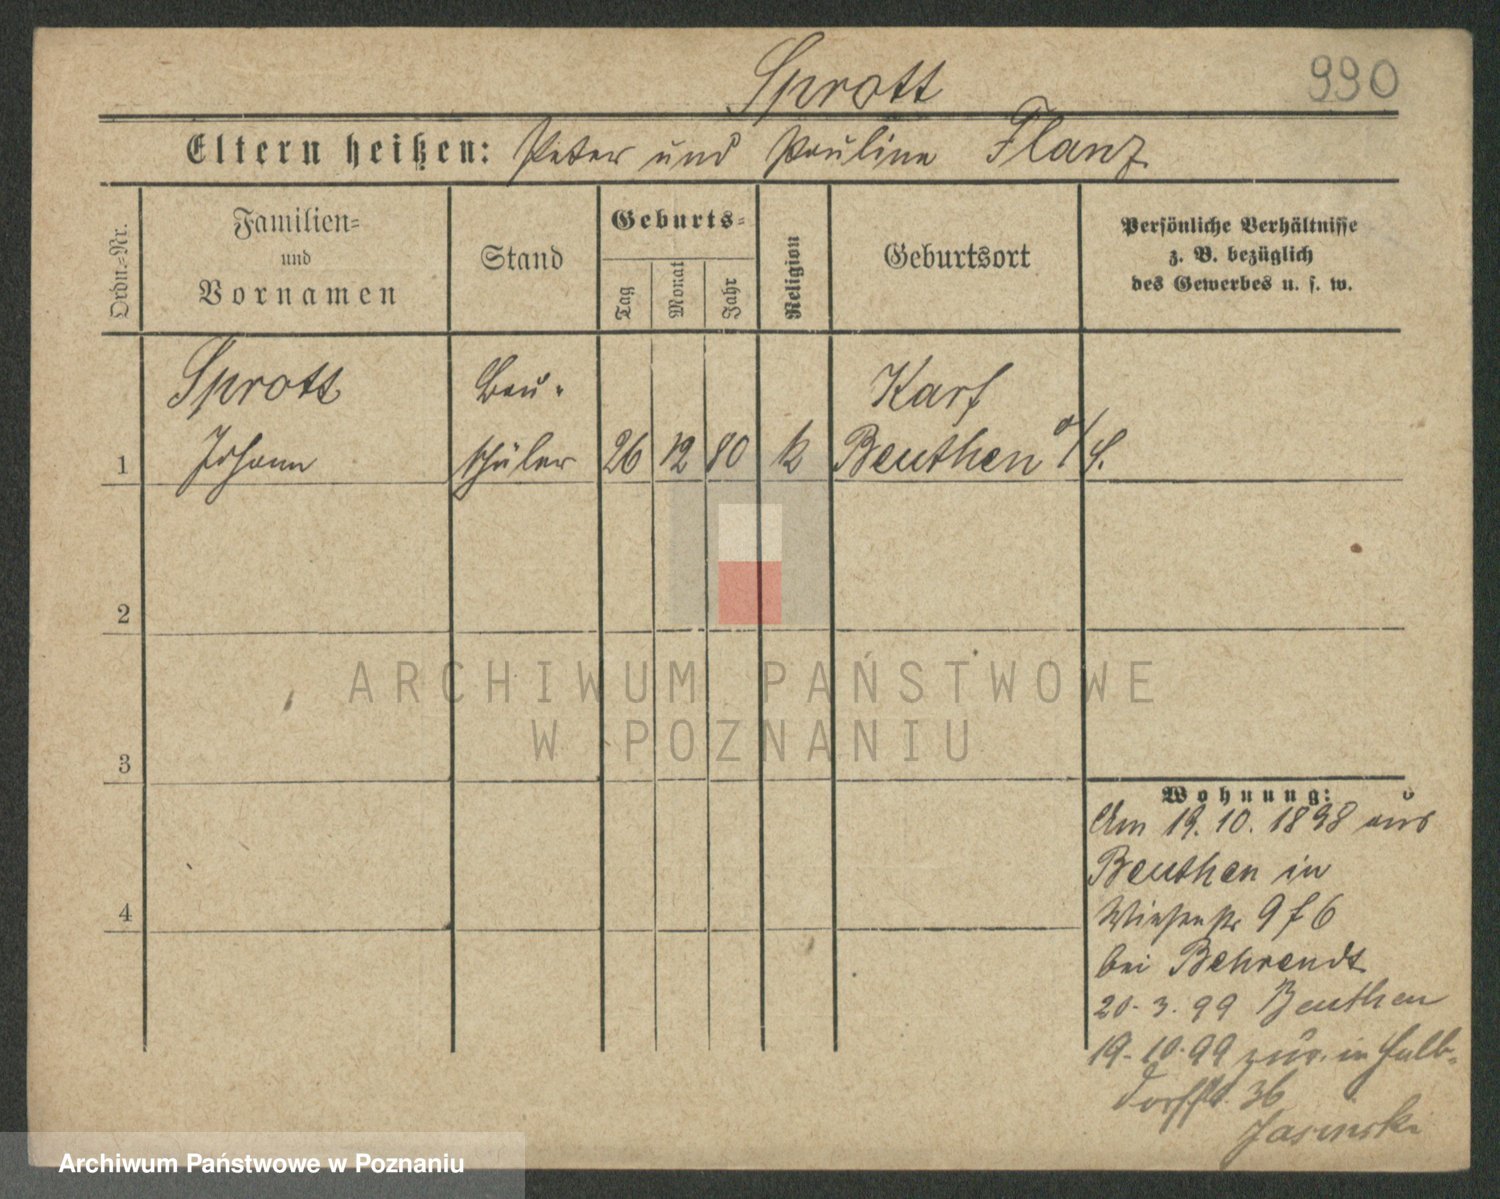 Sprott
990
Eltern heißen: Peter und Pauline Flanz
Ordn.-Nr.
Familien-
und
Vornamen
Stand
Geburts-
Tag
Monat
Jahr
Religion
Geburtsort
Persönliche Verhältnisse
z. B. bezüglich
des Gewerbes u. s. w.
Sprott
Bau-
Karf
1 Johann schüler 26 12 80 k Beuthen o/S.
2
ARCHIWUM PAŃSTWOWE
W POZNANIU
3
Wohnung:
Am 19. 10. 1898 aus
Beuthen in
4
Wiesenstr 9 f 6
bei Behrendt
20. 3. 99 Beuthen
19. 10. 99 zur. in Halb-
dorfstr. 36
Jasinski
Archiwum Państwowe w Poznaniu